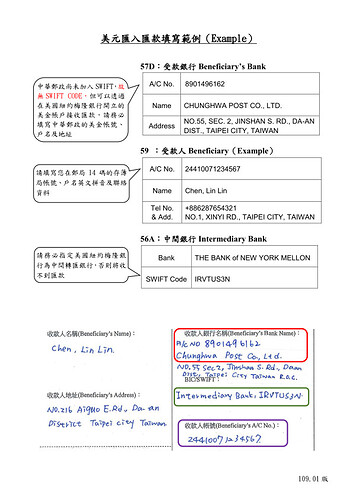 美元匯入匯款填寫範例（Example）
57D：受款銀行 Beneficiary's Bank
中華郵政尚未加入SWIFT，故
無 SWIFT CODE，但可以透過
在美國紐約梅隆銀行開立的
美金帳戶接收匯款，請務必
填寫中華郵政的美金帳號、
戶名及地址
A/C No. 8901496162
Name CHUNGHWA POST CO., LTD.
Address NO.55, SEC. 2, JINSHAN S. RD., DA-AN
DIST., TAIPEI CITY, TAIWAN
59 ：受款人 Beneficiary（Example）
請填寫您在郵局 14 碼的存簿
局帳號，戶名英文拼音及聯絡
資料
A/C No. 24410071234567
Name Chen, Lin Lin
Tel No. & Add. +886287654321
NO.1, XINYI RD., TAIPEI CITY, TAIWAN
56A：中間銀行 Intermediary Bank
請務必指定美國紐約梅隆銀
行為中間轉匯銀行，否則將收
不到匯款
Bank THE BANK of NEW YORK MELLON
SWIFT Code IRVTUS3N
收款人名稱(Beneficiary's Name)：
Chen, Lin Lin.
收款人銀行名稱(Beneficiary's Bank Name)：
A/C NO 8901496162
Chunghwa Post Co., Ltd.
NO.55 Sec 2, Jinshan S. Rd., Daan
Dist., Taipei City Taiwan R.O.C.
BIC/SWIFT：
Intermediary Bank: IRVTUS3N.
收款人地址(Beneficiary's Address)：
NO.216 Aiguo E.Rd., Da-an
District Taipei city Taiwan
收款人帳號(Beneficiary's A/C No.)：
24410071234567
109.01 版